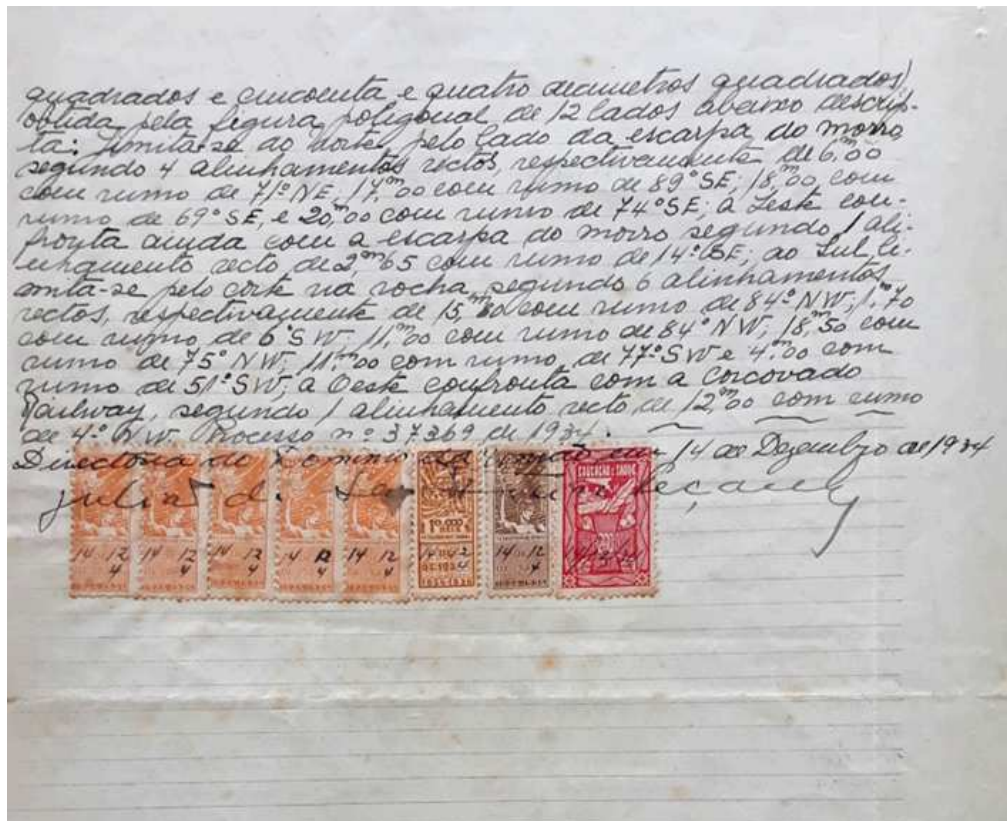 quadrados e cincoenta e quatro decimetros quadrados)
obtida pela figura poligonal de 12 lados abaixo descrip-
ta: Limita-se ao Norte, pelo lado da escarpa do morro
segundo 4 alinhamentos rectos, respectivamente de 6,m00
com rumo de 71º NE, 17,m00 com rumo de 89º SE; 18,m00 com
rumo de 69º SE, e 20,m00 com rumo de 74º SE; a Leste con-
fronta ainda com a escarpa do morro segundo 1 ali-
nhamento recto de 2,m65 com rumo de 14º SE; ao Sul li-
mita-se pelo corte na rocha, segundo 6 alinhamentos
rectos, respectivamente de 15,m com rumo de 84º NW; 1,m70
com rumo de 6º SW, 11,m00 com rumo de 84º NW; 18,m50 com
rumo de 75º NW; 11,m00 com rumo, de 77º SW e 4,m00 com
rumo de 51º SW; a Oeste confronta com a Corcovado
Railway, segundo 1 alinhamento recto de 12,m00 com rumo
de 4º NW. Processo nº 37369 de 1934.
Directoria do Dominio da União em 14 de Dezembro de 1934
EDUCAÇÃO E SAUDE
14 12 14 12 14 12 14 12 14 12 14 12
4 4 4 4 4 4 4